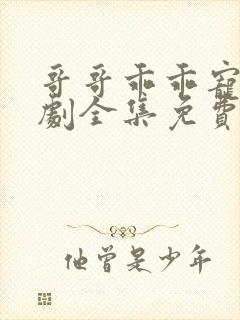 哥哥乖乖寵
劇全集免費
他曾是少年